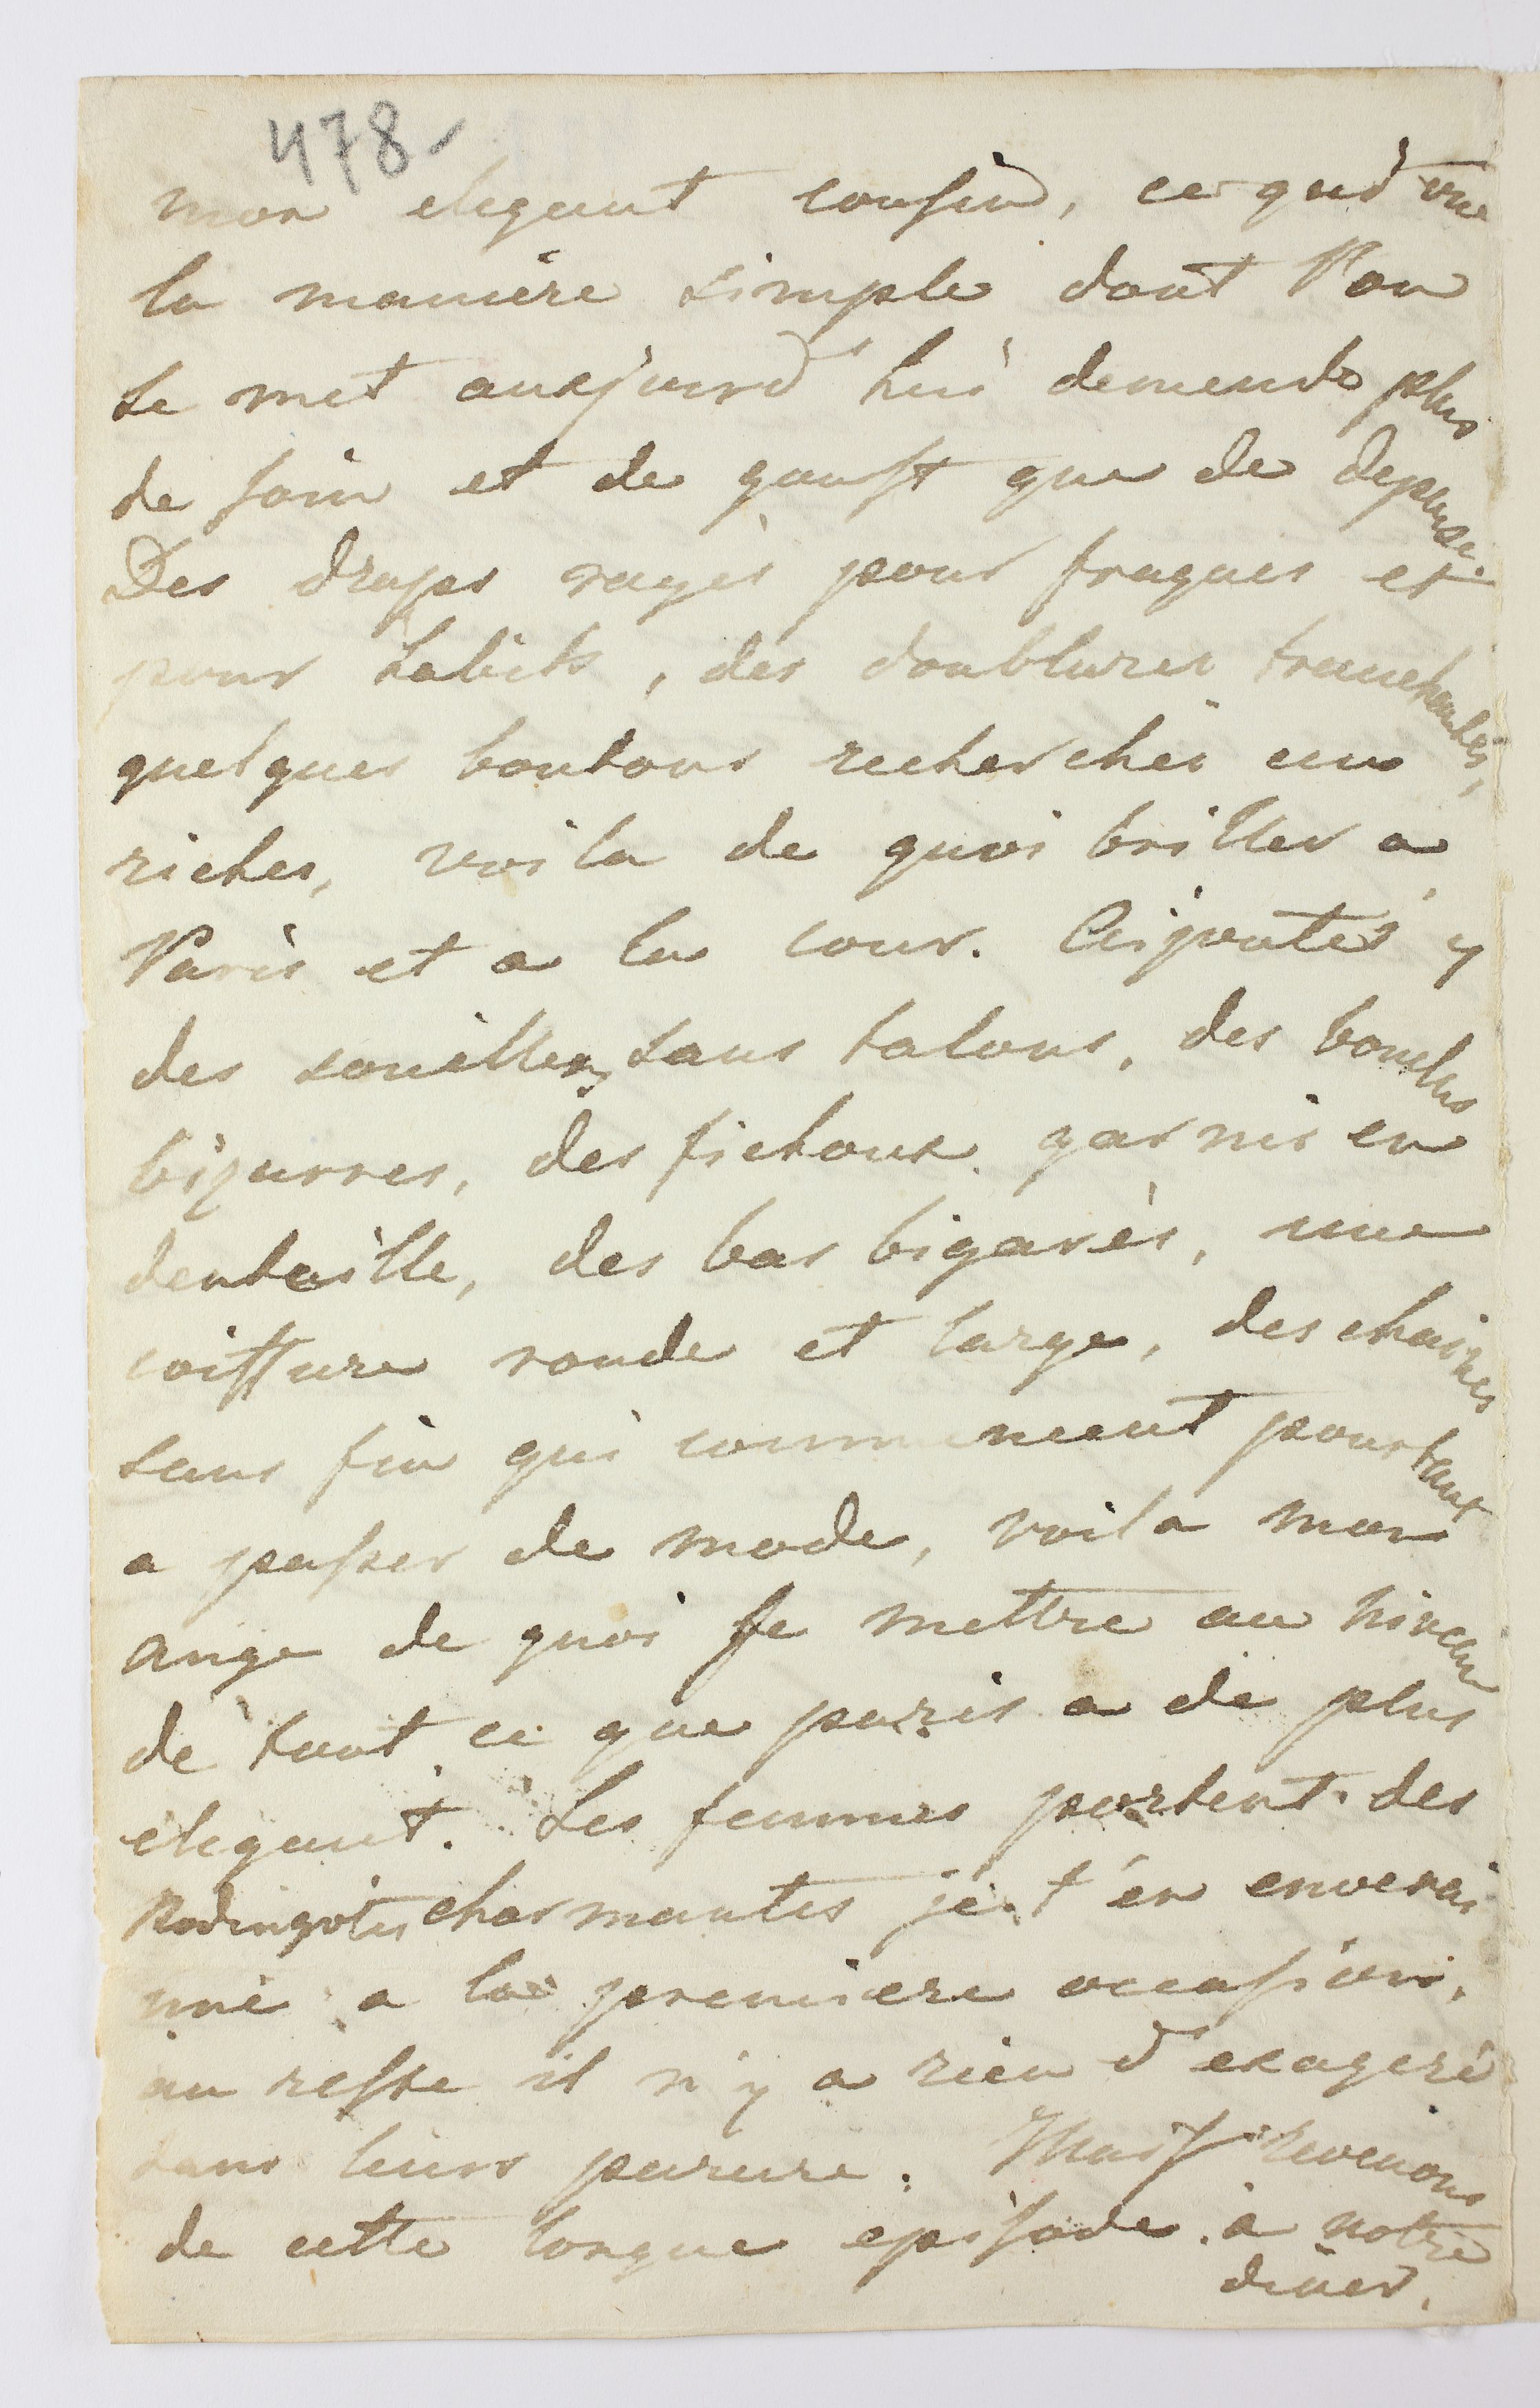 478
mon elegant cousin, ce qui
la maniere simple dont l'on
se met aujourd'hui demende plus
de soin et de goust que de depense.
Des draps rayés pour fraques et
pour habits, des doublures tranchantes,
quelques boutons recherchés
riches, voila de quoi briller a
Paris et a la cour. Ajoutés y
des souilles sans talons, des boucles
bizarres, des fichoux garnis en
dentaille, des bas bigarés, une
coiffure ronde et large, des chaines
sans fin qui commencent pourtant
a passer de mode, voila mon
ange de quoi se mettre au niveau
de tout ce que paris a de plus
elegant. Les femmes portent des
Redingotes charmantes je t'en enverai
une a la premiere occasion,
au reste il n'y a rien d'exageré
dans leurs parure. Mais revenons
de cette longue episode a notre
diner.